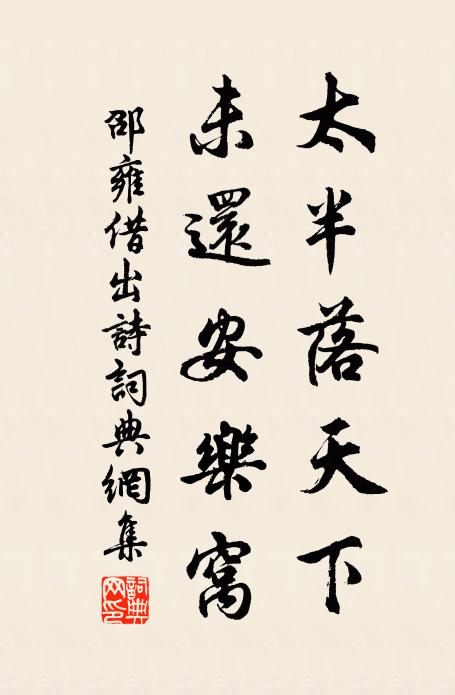 太半落天下
未還安樂窩
邵雍借出詩詞典網集
詞典網印